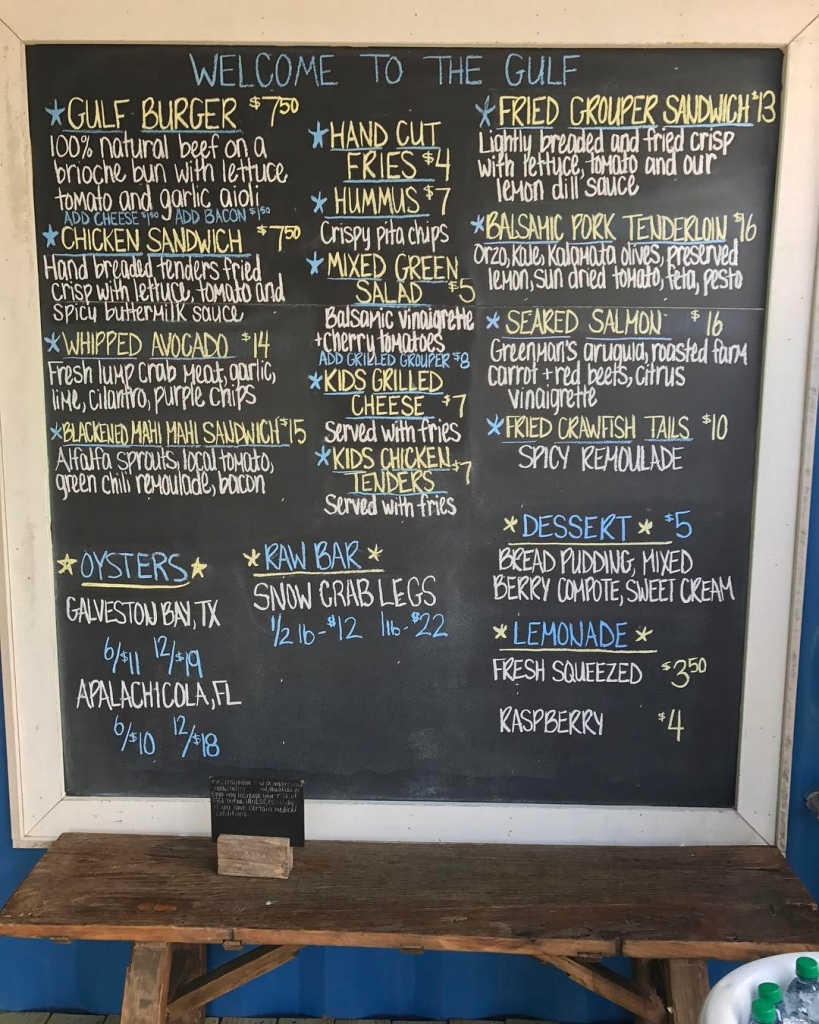 WELCOME TO THE GULF
*GULF BURGER $7.50
100% natural beef on a
brioche bun with lettuce
tomato and garlic aioli
ADD CHEESE $1.50 ADD BACON $1.50
*CHICKEN SANDWICH $7.50
Hand breaded tenders fried
crisp with lettuce, tomato and
spicy buttermilk sauce
*WHIPPED AVOCADO $14
Fresh lump crab meat, garlic,
lime, cilantro, purple chips
*BLACKENED MAHI MAHI SANDWICH $15
Alfalfa sprouts, local tomato,
green chili remoulade, bacon
*HAND CUT
FRIES $4
*HUMMUS $7
Crispy pita chips
*MIXED GREEN
SALAD $5
Balsamic vinaigrette
+cherry tomatoes
ADD GRILLED GROUPER $8
*KIDS GRILLED
CHEESE $7
Served with fries
*KIDS CHICKEN
TENDERS $7
Served with fries
*FRIED GROUPER SANDWICH $13
Lightly breaded and fried crisp
with lettuce, tomato and our
lemon dill sauce
*BALSAMIC PORK TENDERLOIN $16
Orzo, kale, kalamata olives, preserved
lemon, sun dried tomato, feta, pesto
*SEARED SALMON $16
Greenman's arugula, roasted farm
carrot + red beets, citrus
vinaigrette
*FRIED CRAWFISH TAILS $10
SPICY REMOULADE
*OYSTERS*
GALVESTON BAY, TX
6/$11 12/$19
APALACHICOLA, FL
6/$10 12/$18
*RAW BAR*
SNOW CRAB LEGS
1/2 lb-$12 1lb-$22
*DESSERT* $5
BREAD PUDDING, MIXED
BERRY COMPOTE, SWEET CREAM
*LEMONADE*
FRESH SQUEEZED $3.50
RASPBERRY $4
may increase your risk of
if you have certain medical
conditions.